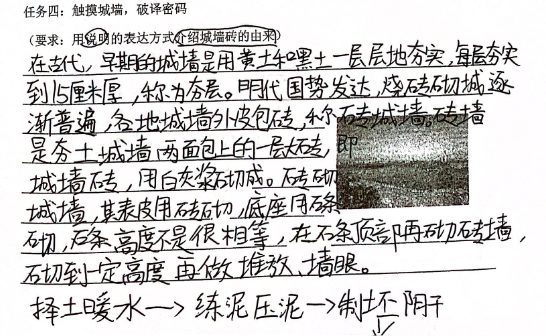 任务四：触摸城墙，破译密码
（要求：用说明的表达方式介绍城墙砖的由来）
在古代，早期的城墙是用黄土和黑土一层层地夯实，每层夯实
到15厘米厚，称为夯层。明代国势发达，烧砖砌城逐
渐普遍，各地城墙外皮包砖，称石砖城墙。砖墙
是夯土城墙两面包上的一层大砖，即
城墙砖，用白灰浆砌成。砖砌
城墙，其表皮用砖砌，底座用石条
砌，石条高度不是很相等，在石条顶部再砌砖墙，
石砌到一定高度再做堆放、墙眼。
择土暖水→练泥压泥→制坯阴干